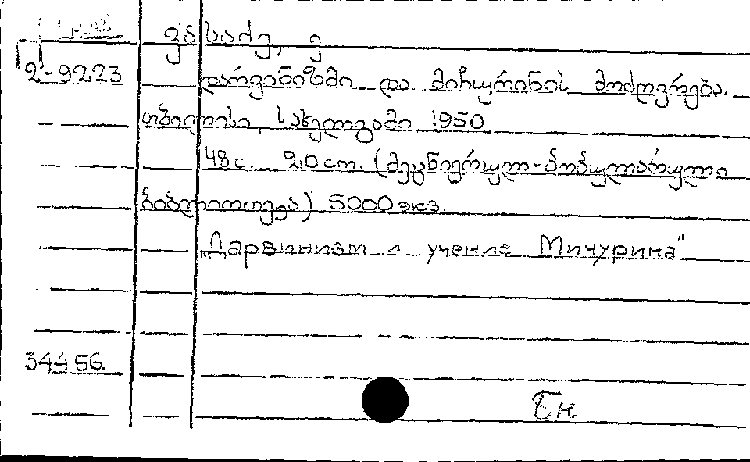 ვასაძე, ვ
2-9223
დარვინიზმი და მიჩურინის მოძღვრება.
თბილისი, სახელგამი 1950
48 с. 20 см. (მეცნიერულ-პოპულარული
ბიბლიოთეკა) 5000 экз.
"Дарвинизм и учение Мичурина"
34456.